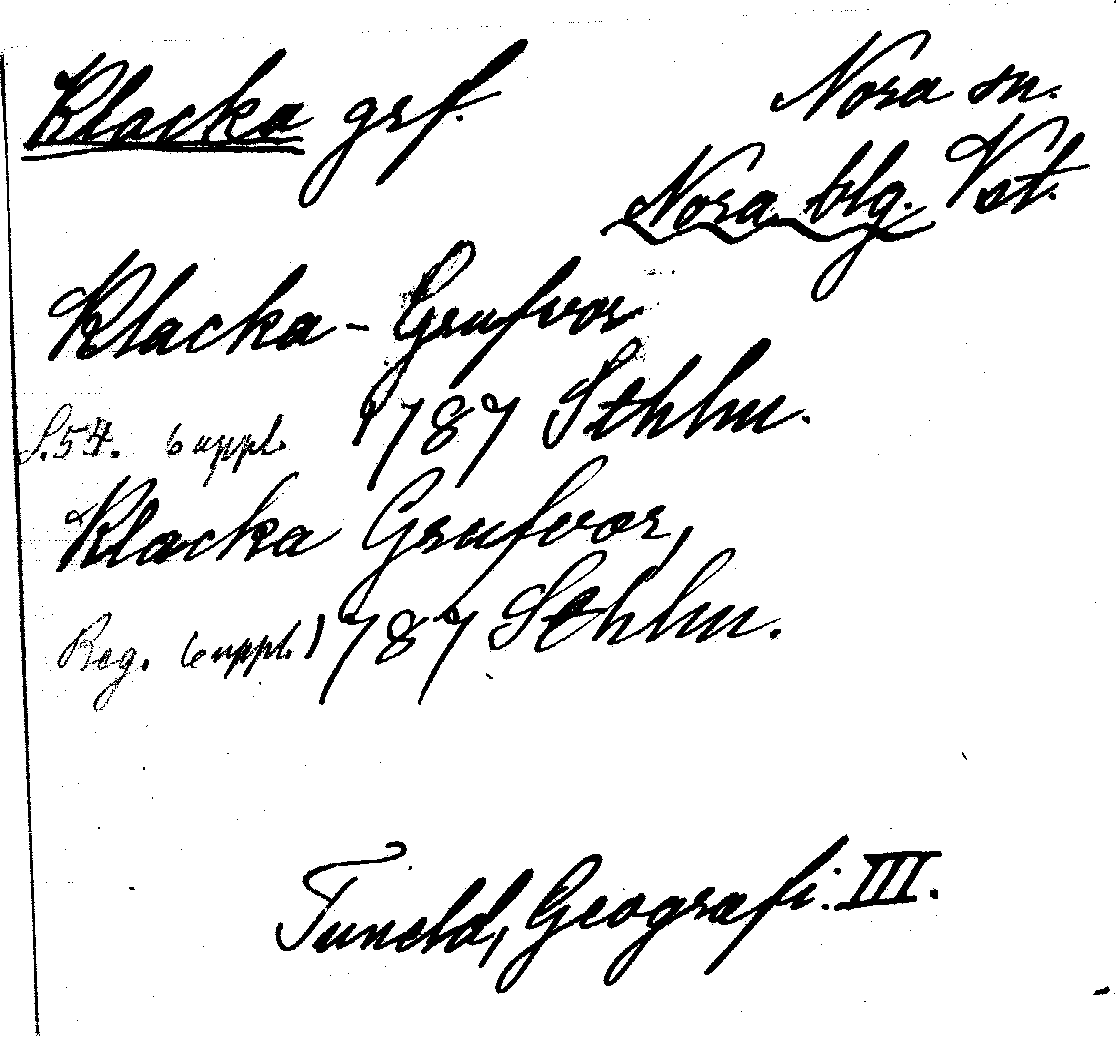 Klacka grf. Nora sn.
Nora blg. Vst.
Klacka-Grufvor
S. 54. 6 uppl. 1787 Sthlm.
Klacka Grufvor,
Reg. 6 uppl.) 1787 Sthlm.
Tuneld, Geografi. III.